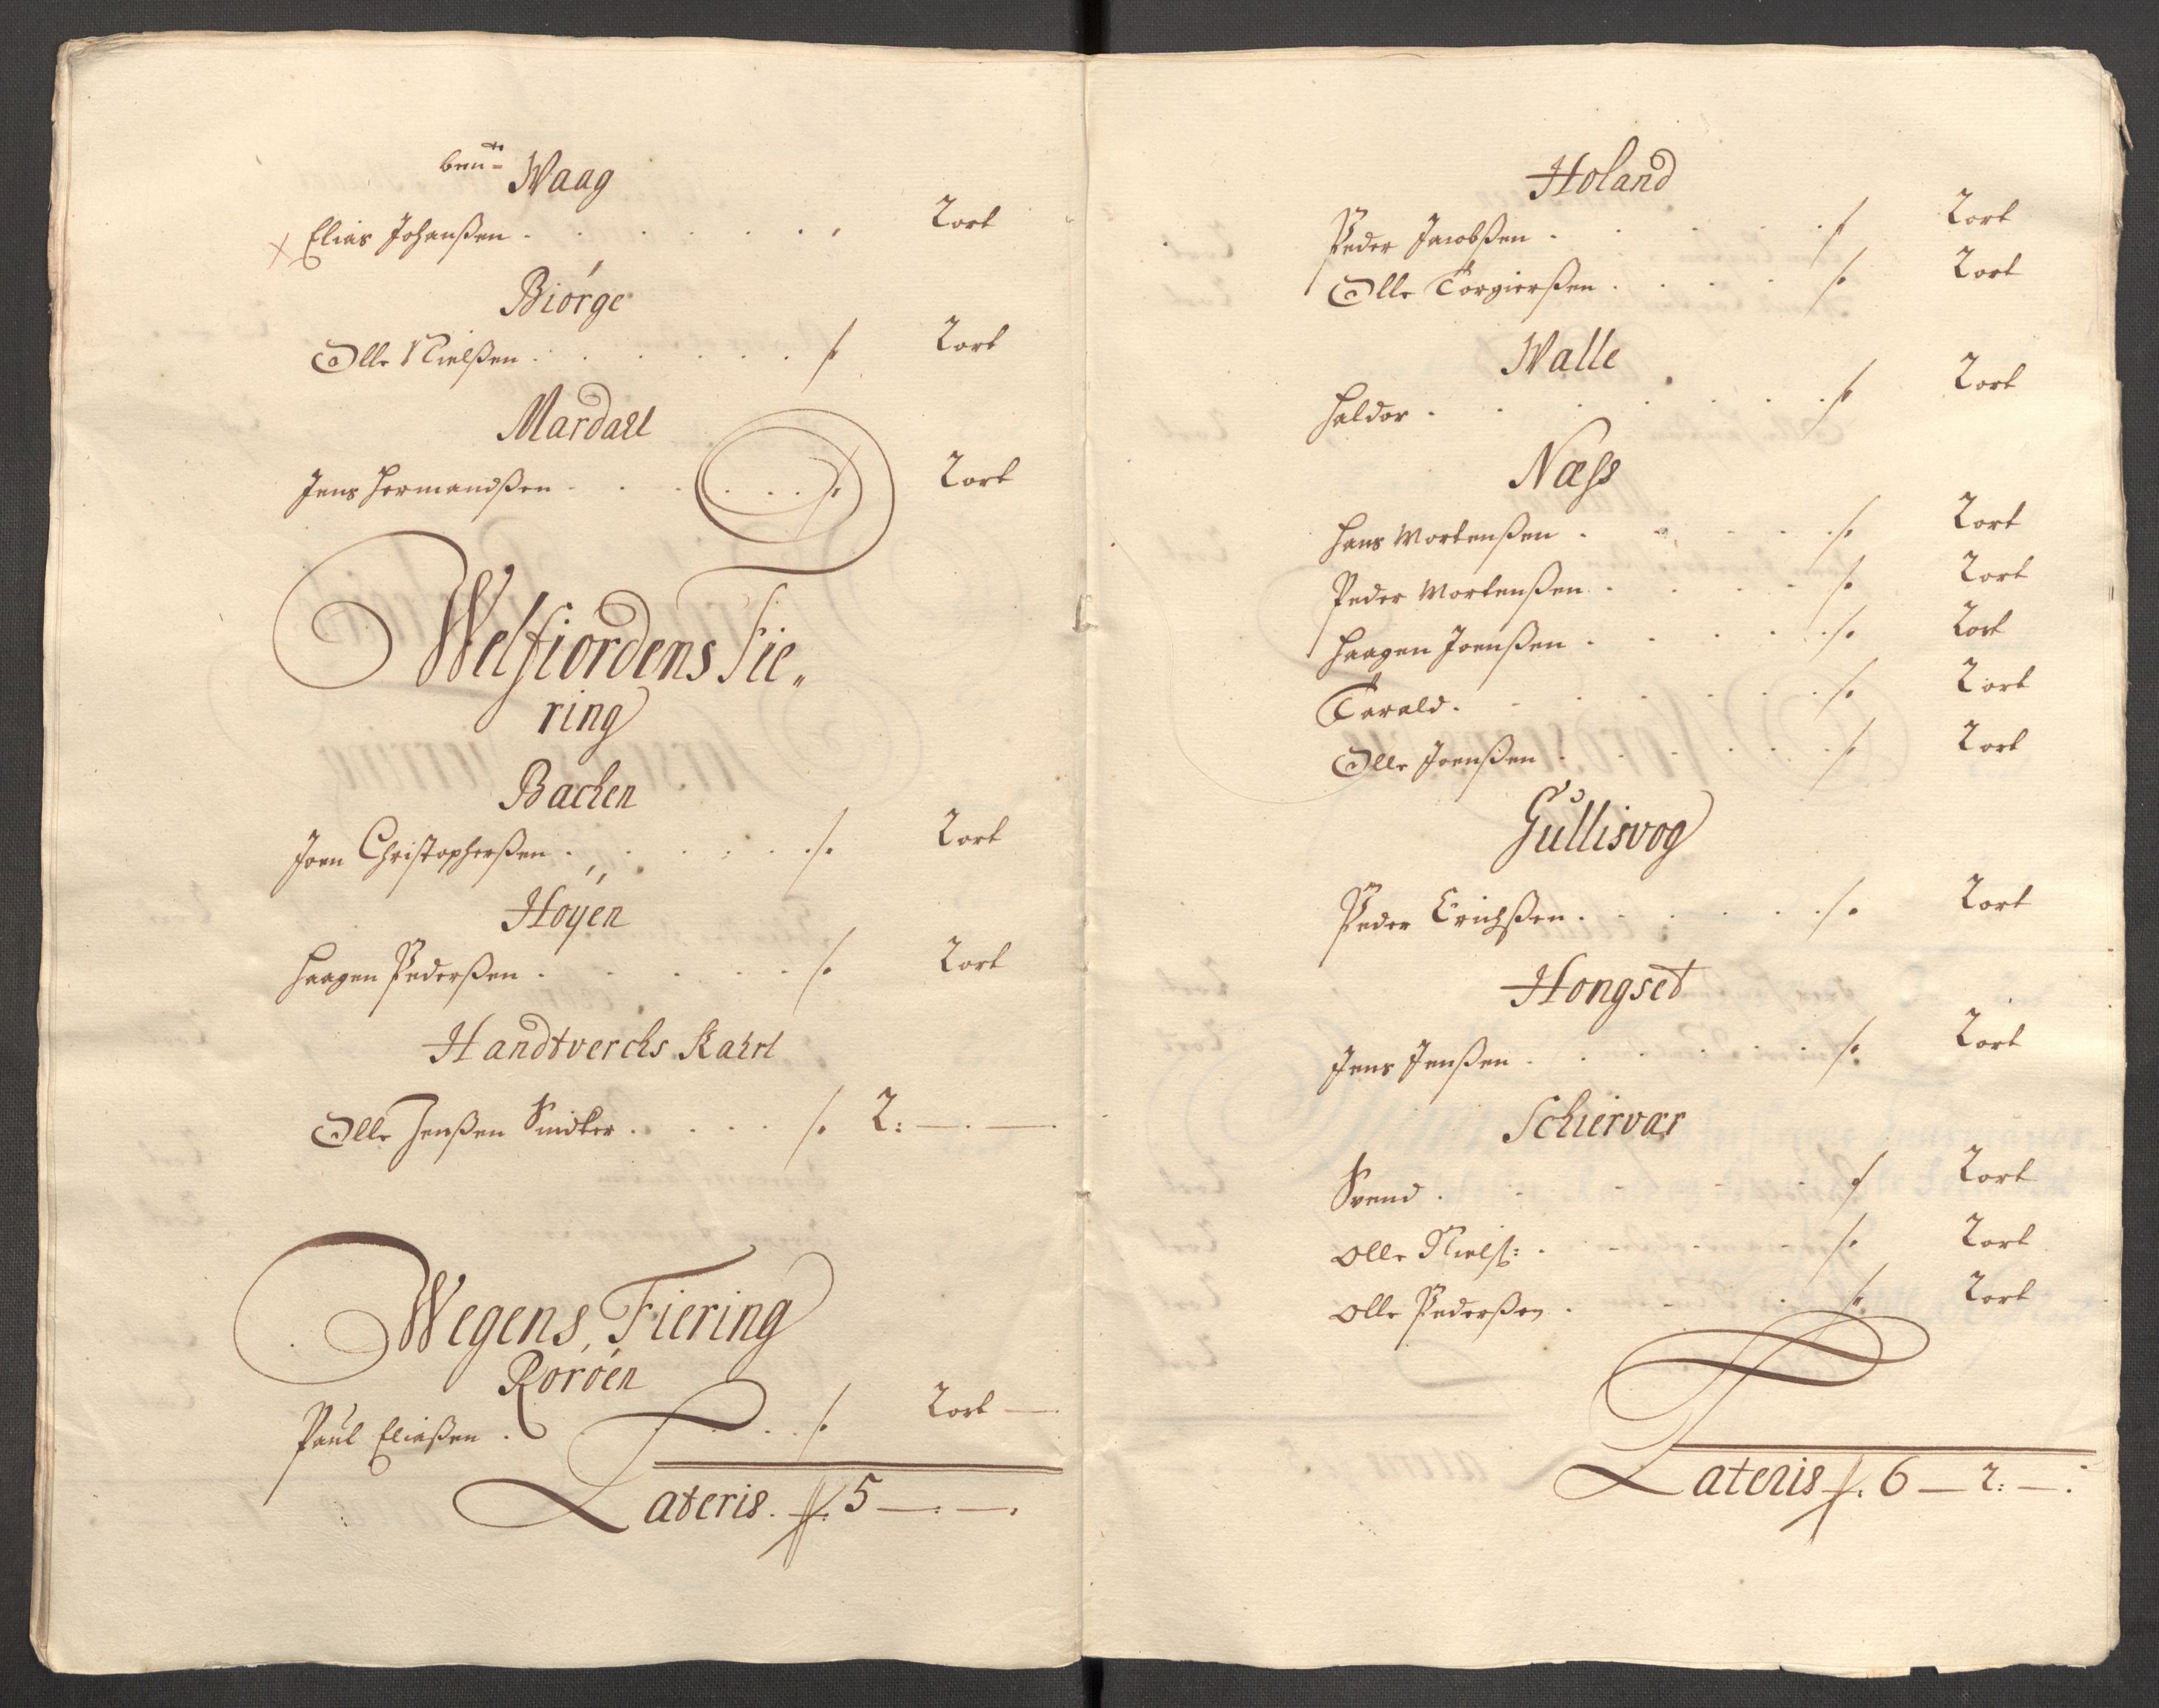 ben:te Waag
Elias Johanßen . . . . . . 2 ort
Biórge
Olle Nielßen . . . . . . 2 ort
Mardall
Jens Hermandßen . . . . . . 2 ort
Welfiordens Fie„
ring
Bachen
Joen Christopherßen . . . . . . 2 ort
Höyen
Haagen Pederßen . . . . . . 2 ort
Handtverchs Kahrl
Olle Jenßen Snidker . . . . 2: — . — .
Wegens Fiering
Roröen
Paul Eliaßen . . . 2 ort —
Lateris . 5 — : — .
Holand
Peder Jacobßen . . . . . 2 ort
Olle Torgierßen . . . . 2 ort
Walle
Haldor . . . . . . . 2 ort
Næss
Hans Mortenßen . . . . . 2 ort
Peder Mortenßen . . . . 2 ort
Haagen Joenßen . . . . . 2 ort
Tarald . . . . . . . 2 ort
Olle Joenßen . . . . . . 2 ort
Gullisvog
Peder Erichßen . . . . . . 2 ort
Hongset
Jens Jenßen . . . . . . 2 ort
Schiervær
Svend . . . . . . 2 ort
Olle Niels: . . . . . 2 ort
Olle Pederßen . . . . 2 ort
Lateris 6 — 2: — .